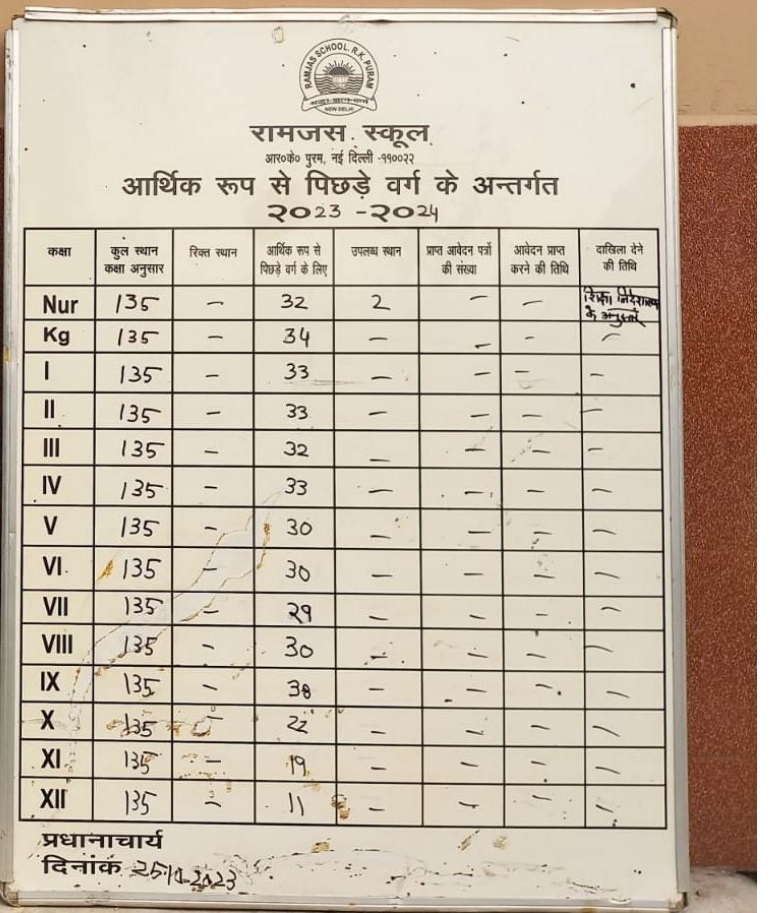 RAMJAS SCHOOL. R.K. PURAM
NEW DELHI
रामजस स्कूल
आर०के० पुरम, नई दिल्ली -११००२२
आर्थिक रूप से पिछड़े वर्ग के अन्तर्गत
२०23 -२०२4
कक्षा कुल स्थान कक्षा अनुसार रिक्त स्थान आर्थिक रूप से पिछड़े वर्ग के लिए उपलब्ध स्थान प्राप्त आवेदन पत्रों की संख्या आवेदन प्राप्त करने की तिथि दाखिला देने की तिथि
Nur 135 - 32 2 - - शिक्षा निदेशालय के अनुसार
Kg 135 - 34 - - - -
I 135 - 33 - - - -
II 135 - 33 - - - -
III 135 - 32 - - - -
IV 135 - 33 - - - -
V 135 - 30 - - - -
VI. 135 - 30 - - - -
VII 135 - 29 - - - -
VIII 135 - 30 - - - -
IX 135 - 38 - - - -
X 135 - 22 - - - -
XI 135 - 19 - - - -
XII 135 - 11 - - - -
प्रधानाचार्य
दिनांक 2023